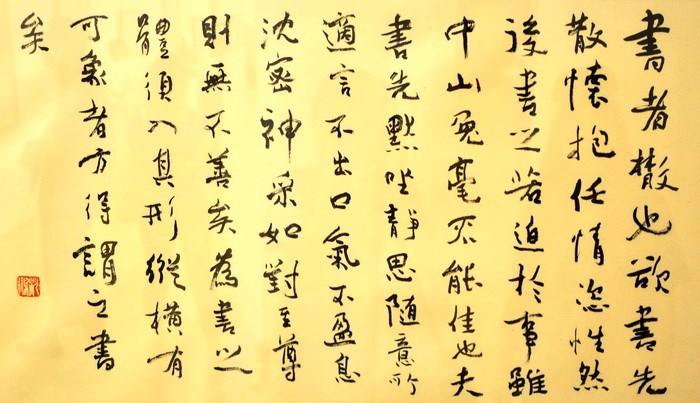 書者散也欲書先
散懷抱任情恣性然
後書之若迫於事雖
中山兔毫不能佳也夫
書先默坐靜思隨意所
適言不出口氣不盈息
沈密神采如對至尊
則無不善矣為書之
體須入其形縱橫有
可象者方得謂之書
矣